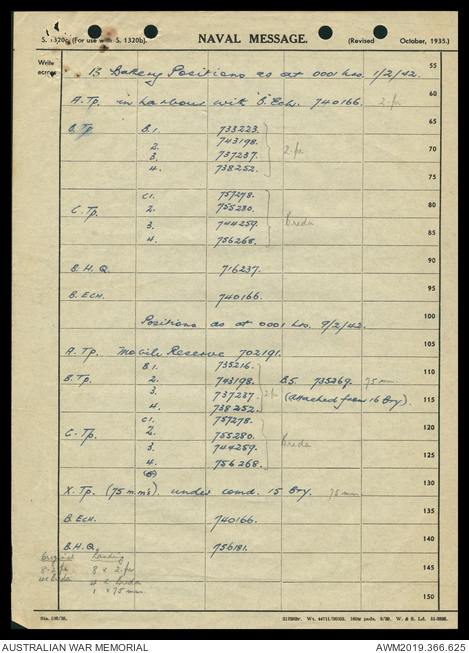 S. 1320c. (For use with S. 1320b). NAVAL MESSAGE. (Revised October, 1935.)
Write across
13 Battery Positions as at 0001 hrs. 1/2/42. 55
A. Tp. in harbour with 'B' Ech. 740166. 2-pr 60
B. Tp. B.1. 733223. 65
2. 743198. 2-pr
3. 737237. 70
4. 738252.
75
C1. 757278. 80
C. Tp. 2. 755280.
3. 744259. Breda 85
4. 756268.
90
B.H.Q. 716237.
95
B. ECH. 740166.
100
Positions as at 0001 hrs. 9/2/42.
105
A. Tp. Mobile Reserve 702191.
B.1. 735216. 110
B. Tp. 2. 743198. B5. 735269. 75 mm.
3. 737237. 2 pr (attached from 16 Bty). 115
4. 738252.
C1. 757278. 120
C. Tp. 2. 755280.
3. 744259. Breda 125
4. 756268.
130
X. Tp. (75 m.m's). under comd. 15 Bty. 75 mm
135
B. ECH. 740166.
140
B.H.Q. 756181.
Original Landing
8 2 pr 8 x 2-pr 145
4 Breda 4 x Breda
1 x 75 mm.
150
Sta. 106/35.
AUSTRALIAN WAR MEMORIAL AWM2019.366.625